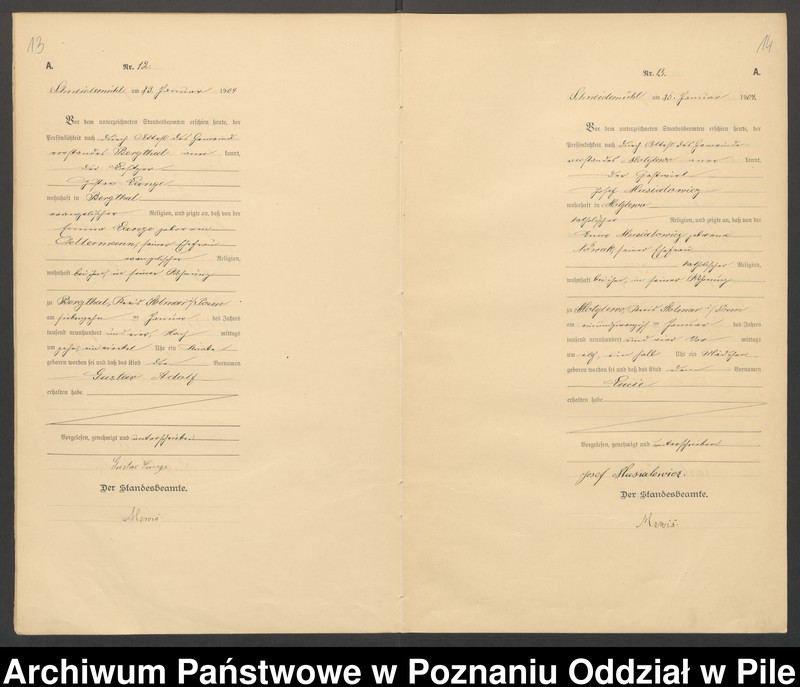 13
A.
Nr. 12.
Schneidemühl, am 23. Januar 1904.
Vor dem unterzeichneten Standesbeamten erschien heute, der
Persönlichkeit nach durch Attest des Gemeinde
vorstandes Bergthal aner kannt,
der Besitzer
Gustav Lange
wohnhaft in Bergthal
evangelischer Religion, und zeigte an, daß von der
Emma Lange geborenen
seiner Ehefrau
evangelischer Religion,
wohnhaft bei ihm, in seiner Wohnung
zu Bergthal, Kreis Kolmar i/Posen
am siebzehn ten Januar des Jahres
tausend neunhundert und vier, Nach mittags
um sechs, ein viertel Uhr ein Knabe
geboren worden sei und daß das Kind die Vornamen
Gustav Adolf
erhalten habe.
Vorgelesen, genehmigt und unterschrieben
Gustav Lange
Der Standesbeamte.
14
Nr. 13.
A.
Schneidemühl, am Januar 1904.
Vor dem unterzeichneten Standesbeamten erschien heute, der
Persönlichkeit nach durch Attest des Gemeinde
vorstandes aner kannt,
der Gastwirt
Josef Musialowicz
wohnhaft in
katholischer Religion, und zeigte an, daß von der
Anna Musialowicz geborene
Nowak, seiner Ehefrau
katholischer Religion,
wohnhaft bei ihm, in seiner Wohnung
zu Kreis Kolmar i/Posen
am einundzwanzigsten Januar des Jahres
tausend neunhundert und vier Vor mittags
um elf, ein halb Uhr ein Mädchen
geboren worden sei und daß das Kind den Vornamen
Lucie
erhalten habe.
Vorgelesen, genehmigt und unterschrieben
Josef Musialowicz.
Der Standesbeamte.
Archiwum Państwowe w Poznaniu Oddział w Pile